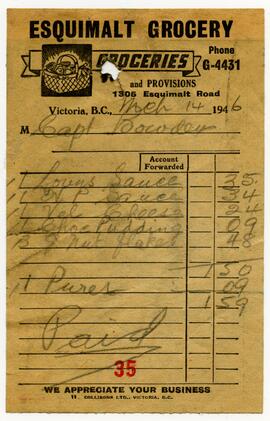 ESQUIMALT GROCERY
GROCERIES
Phone
G-4431
and PROVISIONS
1305 Esquimalt Road
Victoria, B.C., Mch 14 1946
M Capt Bowden
Account
Forwarded
Sauce 35
1 Sauce 34
1 Vel Cheese 24
1 Choc Pudding 09
Flakes 48
1 50
1 Purex 09
1 59
Paid
35
WE APPRECIATE YOUR BUSINESS
COLLISONS LTD., VICTORIA, B.C.